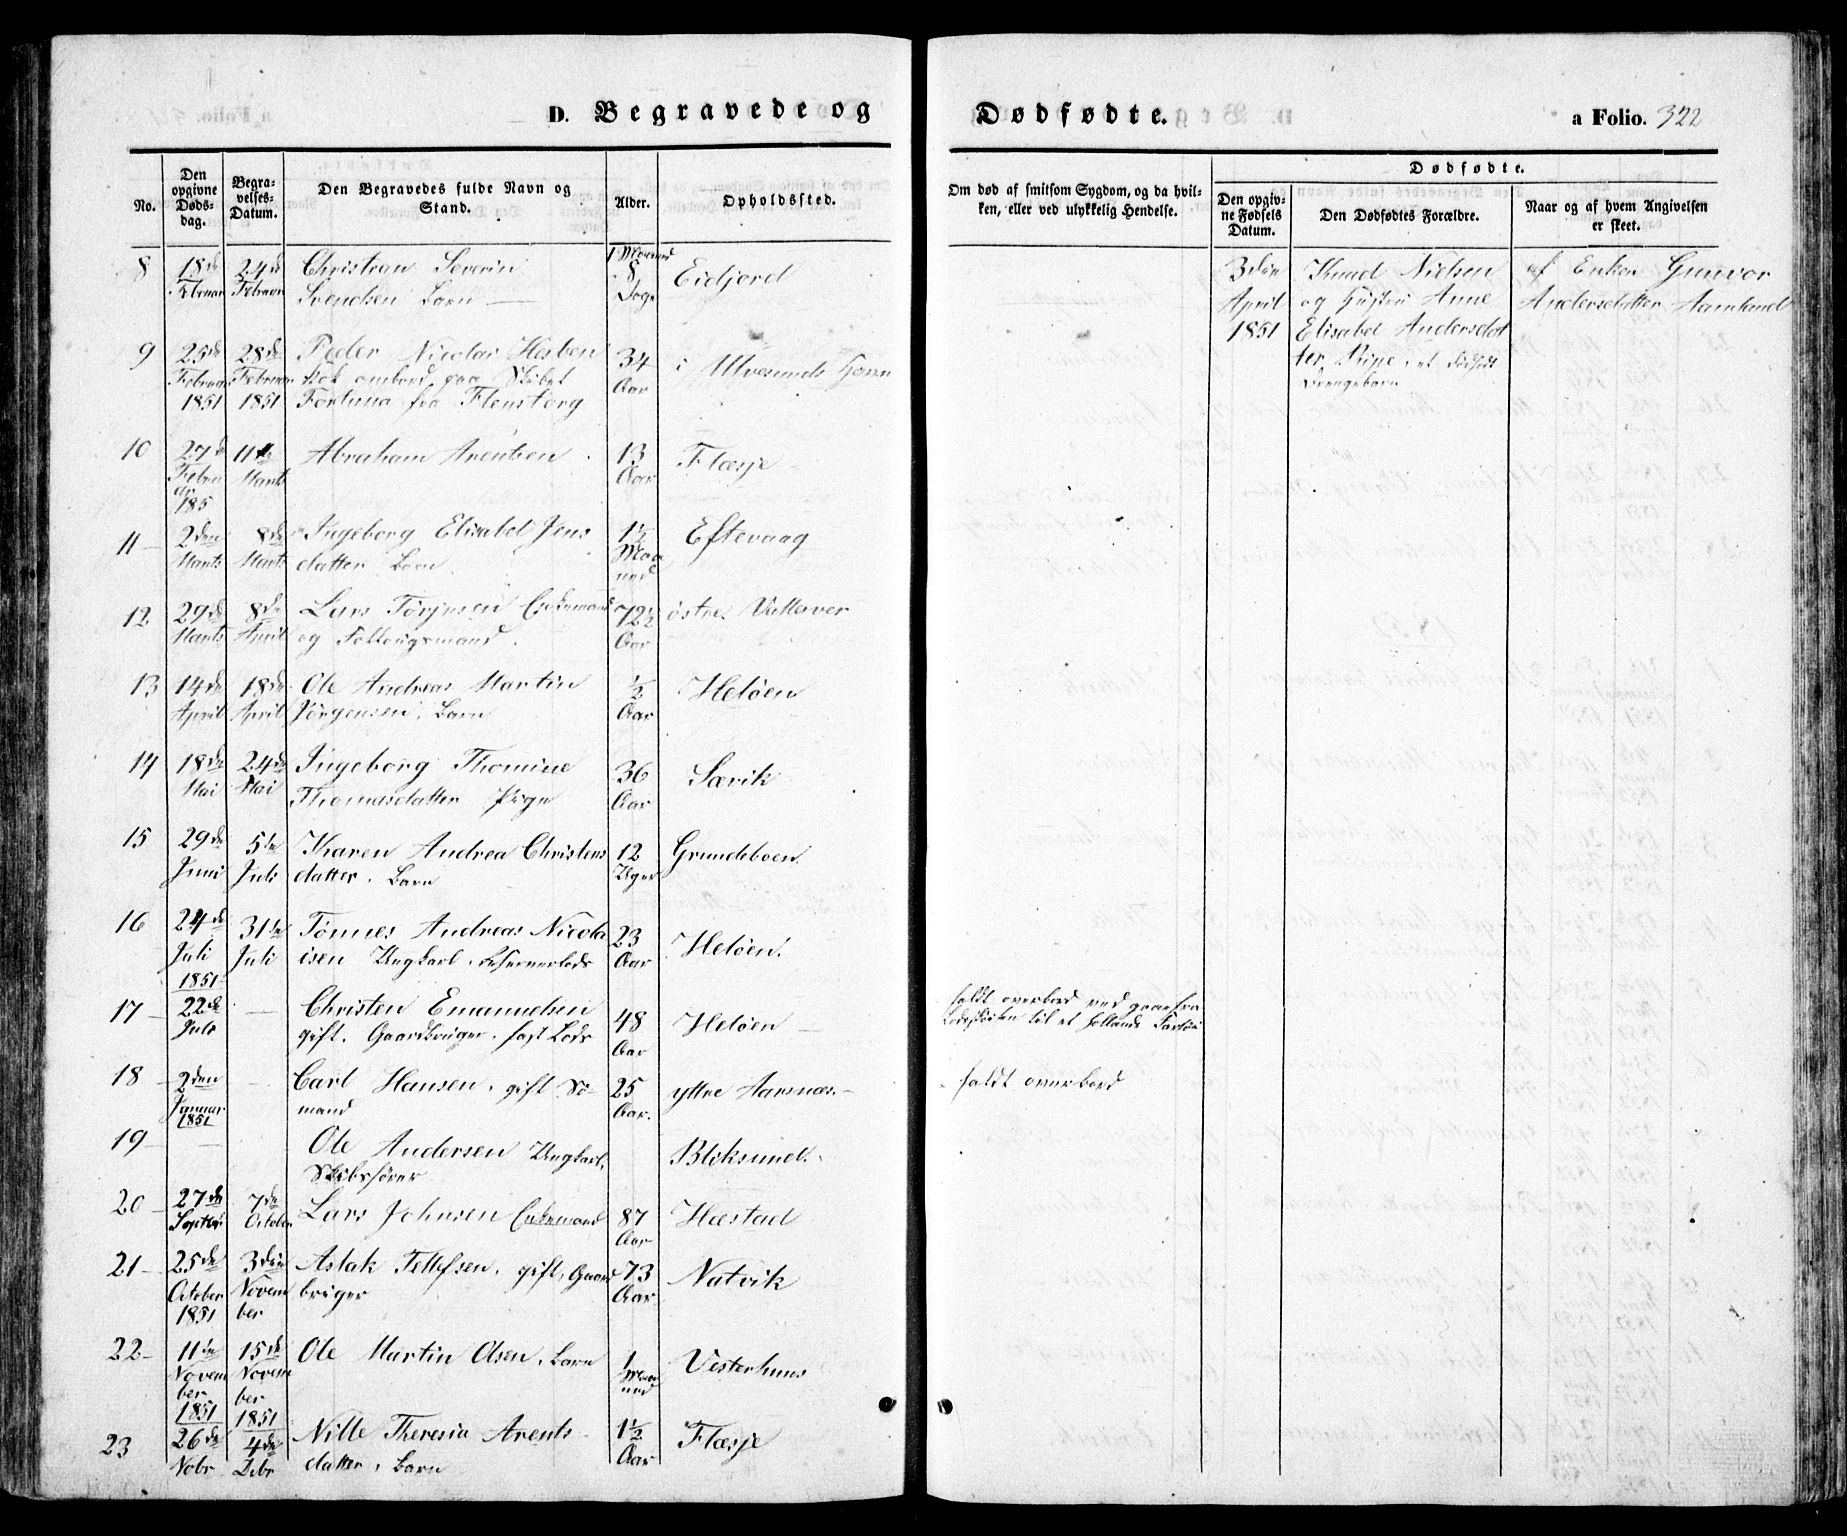 D. Begravede og Dødfødte. a Folio. 322
No. Den opgivne Dødsdag. Begravelses-Datum. Den Begravedes fulde Navn og Stand. Alder. Opholdssted. Om død af smitsom Sygdom, og da hvilken, eller ved ulykkelig Hendelse. Dødfødte.
Den opgivne Fødsels Datum. Den Dødfødtes Forældre. Naar og af hvem Angivelsen er skeet.
8 18de Februar 24de Februar Christian Severin
Svendsen Barn 1 Maaned 8 Dage Eidjord
3die April 1851 Knud Nielsen
og Hustru Anne
Elisabet Andersdat
ter Ripe, et dødfødt
Drengebarn
af Enken Gunvor
Andersdatter Aamland
9 25de Februar 1851 28de Februar 1851 Peder Nicolai
Kok ombord paa Skibet
Fortuna fra Flensborg 34 Aar i Ulvesunds Havn
10 27de Februar 185 11te Marts Abraham Arentsen 13 Aar Flæsje
11 2den Marts 8de Marts Ingeborg Elisabet Jens
datter Barn 1½ Maaned Eftevaag
12 29de Marts 8de April Lars Torjusen Enkemand
og Follougsmand. 72½ Aar østre Vallesver
13 14de April 18de April Ole Andreas Martin
Jörgensen, Barn ½ Aar Heløen
14 18de Mai 24de Mai Ingeborg Thomine
Thomasdatter Pige 36 Aar Sævik
15 29de Juni 5te Juli Karen Andrea Christens
datter. Barn 12 Uger Grundeboen
16 24de Juli 1851 31te Juli Tönnes Andreas Nicola
isen Ungkarl. Reservelods 23 Aar Heløen.
17 22de Juli — Christen Emanuelsen
gift. Gaardbruger. fast Lods 48 Aar Heløen
faldt overbord ved gaae fra
Lodsskøiten til et hollandsk Fartøi
18 2den Januar 1851 — Carl Hansen, gift Sö-
mand 25 Aar. yttre Aarsnæs.
faldt overbord
19 — Ole Andersen Ungkarl,
Skibsfører Bliksund.
20 27de Septbr 7de October Lars Johnsen Enkemand 87 Aar Hæstad
21 25de October 1851 3die November Aslak Tellefsen. gift, Gaard
bruger 73 Aar Natvik
22 11te November 1851 15de November 1851 Ole Martin Olsen. Barn 1 Maaned Vesterhuus
23 26de Nobr 4de Dcbr Nille Theresia Arents
datter, Barn 1½ Aar Flæsje